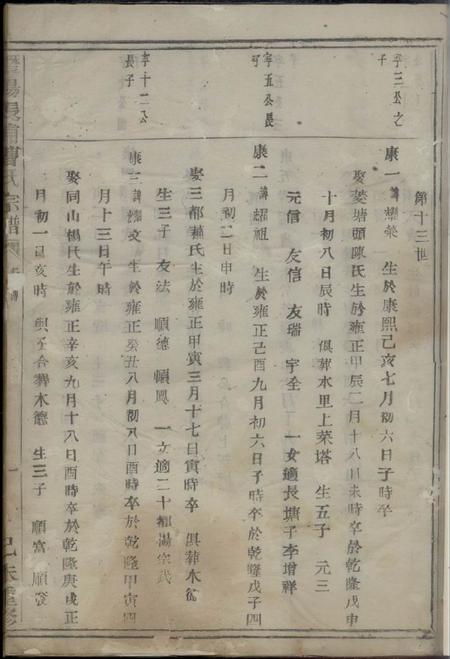 第十三世
字三公之子
康一諱耀榮 生於康熙己亥七月初六日子時卒
娶菱塘頭陳氏生於雍正甲辰二月十八日未時卒於乾隆戊申
十月初八日辰時 俱葬水里上菜塔 生五子 元三
元信 友信 友瑞 宇全 一女適長塘子李增祥
字五公長子
康二諱耀祖 生於雍正己酉九月初六日子時卒於乾隆戊子四
月初二日申時
娶三都蕭氏生於雍正甲寅三月十七日寅時卒 俱葬木德
生三子 友法 順德 順鳳 一女適二十都湯宗武
字十二公長子
康三諱耀文 生於雍正癸丑八月初八日酉時卒於乾隆甲寅四
月十三日午時
娶同山楊氏生於雍正辛亥九月十八日酉時卒於乾隆庚戌正
月初一日亥時 與夫合葬木德 生三子 順富 順發
宗譜